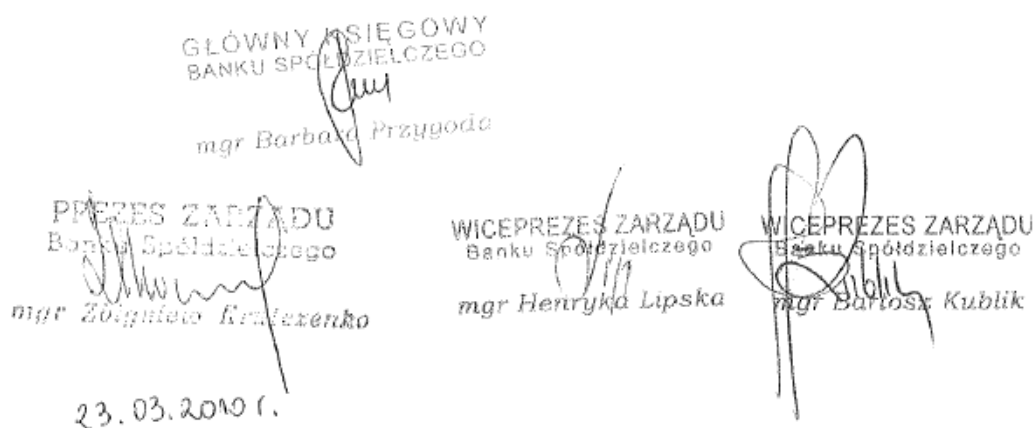 GŁÓWNY KSIĘGOWY
BANKU SPÓŁDZIELCZEGO
mgr Barbara Przygoda
PREZES ZARZĄDU
Banku Spółdzielczego
mgr Zbigniew
WICEPREZES ZARZĄDU
Banku Spółdzielczego
mgr Henryka Lipska
WICEPREZES ZARZĄDU
Banku Spółdzielczego
mgr Bartosz Kublik
23.03.2010 r.